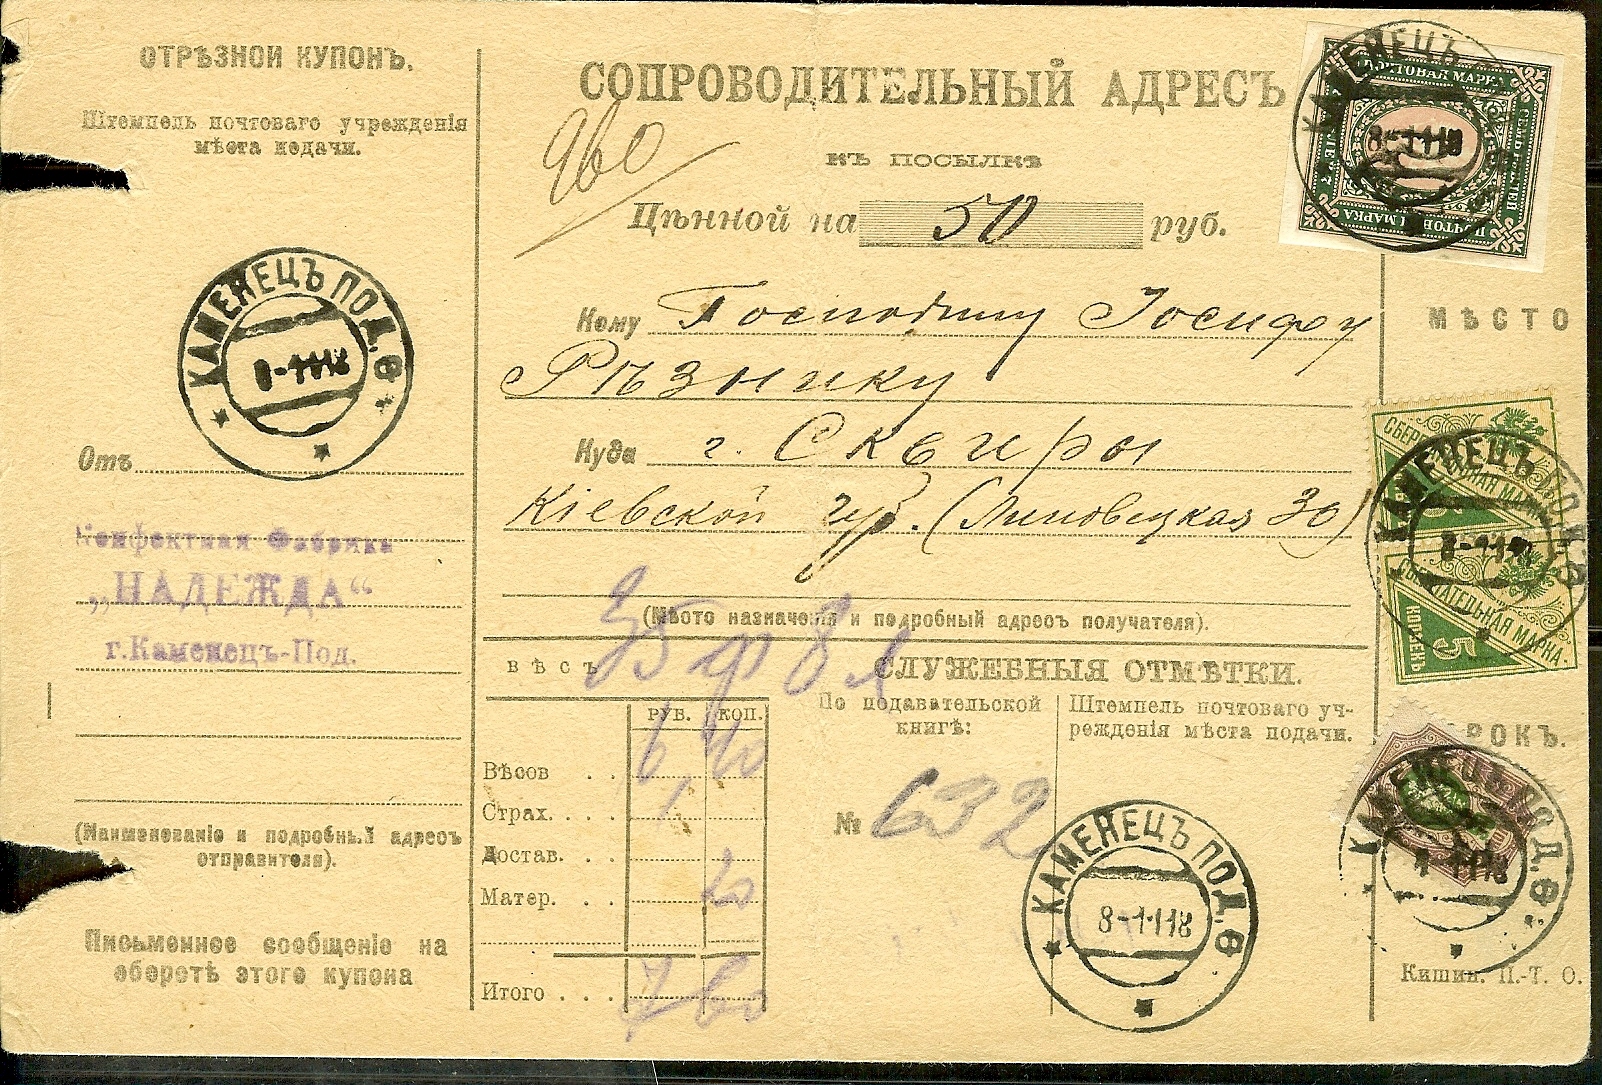 ОТРѢЗНОЙ КУПОНЪ.
Штемпель почтоваго учрежденія
мѣста подачи.
КАМЕНЕЦЪ ПОД.
8-1-118
Отъ
Конфектная Фабрика
„НАДЕЖДА“
г.Каменецъ-Под.
(Наименованіе и подробный адресъ
отправителя).
Письменное сообщеніе на
оборотѣ этого купона
СОПРОВОДИТЕЛЬНЫЙ АДРЕСЪ
КЪ ПОСЫЛКѢ
Цѣнной на 50 руб.
Кому Господину Іосифу
Рѣзнику
Куда г. Сквиры
Кіевской губ. (Липовецкая 30)
(Мѣсто назначенія и подробный адресъ получателя).
ВѢСЪ
РУБ. КОП.
Вѣсов . .
Страх. . . .
Достав. . .
Матер. . . 20
Итого . . . 7 60
СЛУЖЕБНЫЯ ОТМѢТКИ.
По подавательской
книгѣ:
№ 632
Штемпель почтоваго уч-
режденія мѣста подачи.
КАМЕНЕЦЪ ПОД.
8-1-118
КАМЕНЕЦЪ
8-1-118
ПОЧТОВАЯ МАРКА
МѢСТО
КАМЕНЕЦЪ ПОД.
СБЕРЕГАТЕЛЬНАЯ МАРКА
СБЕРЕГАТЕЛЬНАЯ МАРКА
5 КОПѢЕКЪ
РОКЪ.
КАМЕНЕЦЪ ПОД.
Кишин. П.-Т. О.